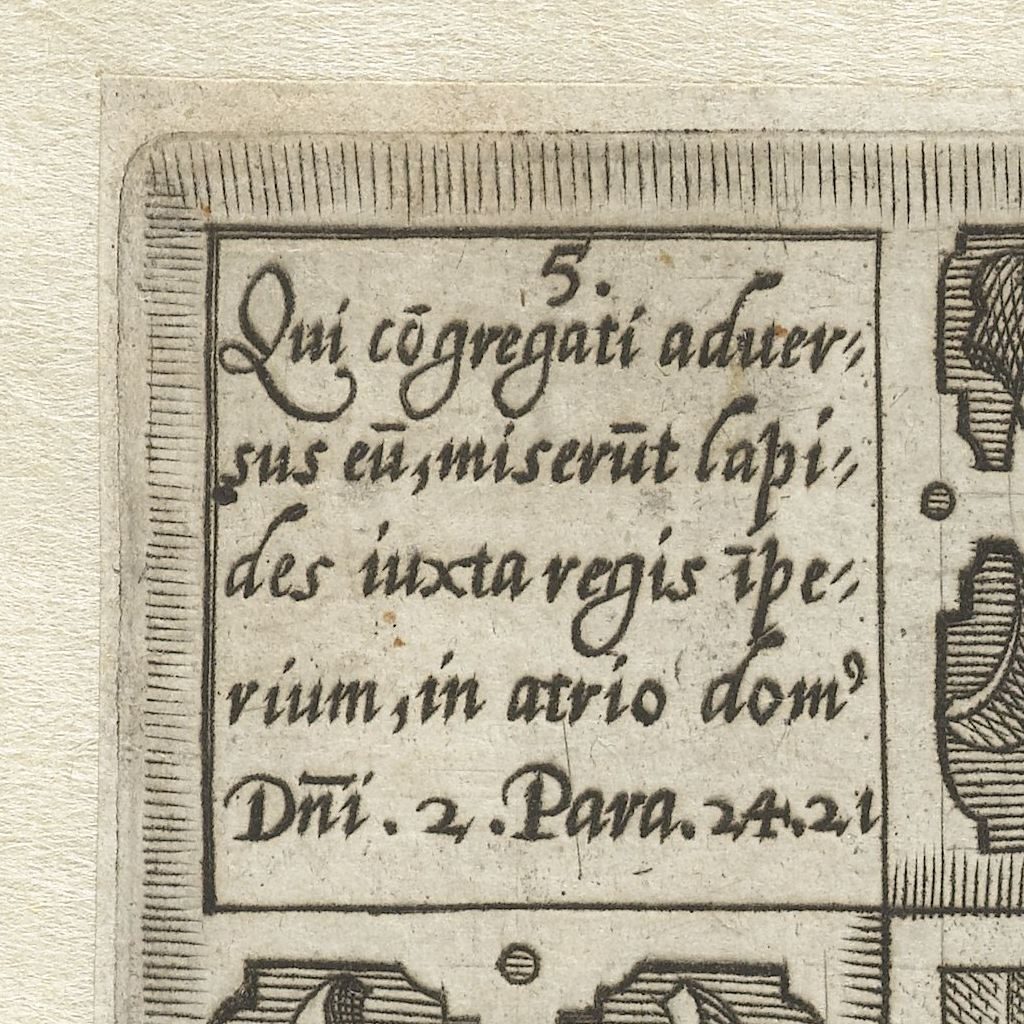 5.
Qui cōgregati aduer-
sus eū, miserūt lapi-
des iuxta regis īpe-
rium, in atrio domꝰ
Dn̄i. 2. Para. 24. 21